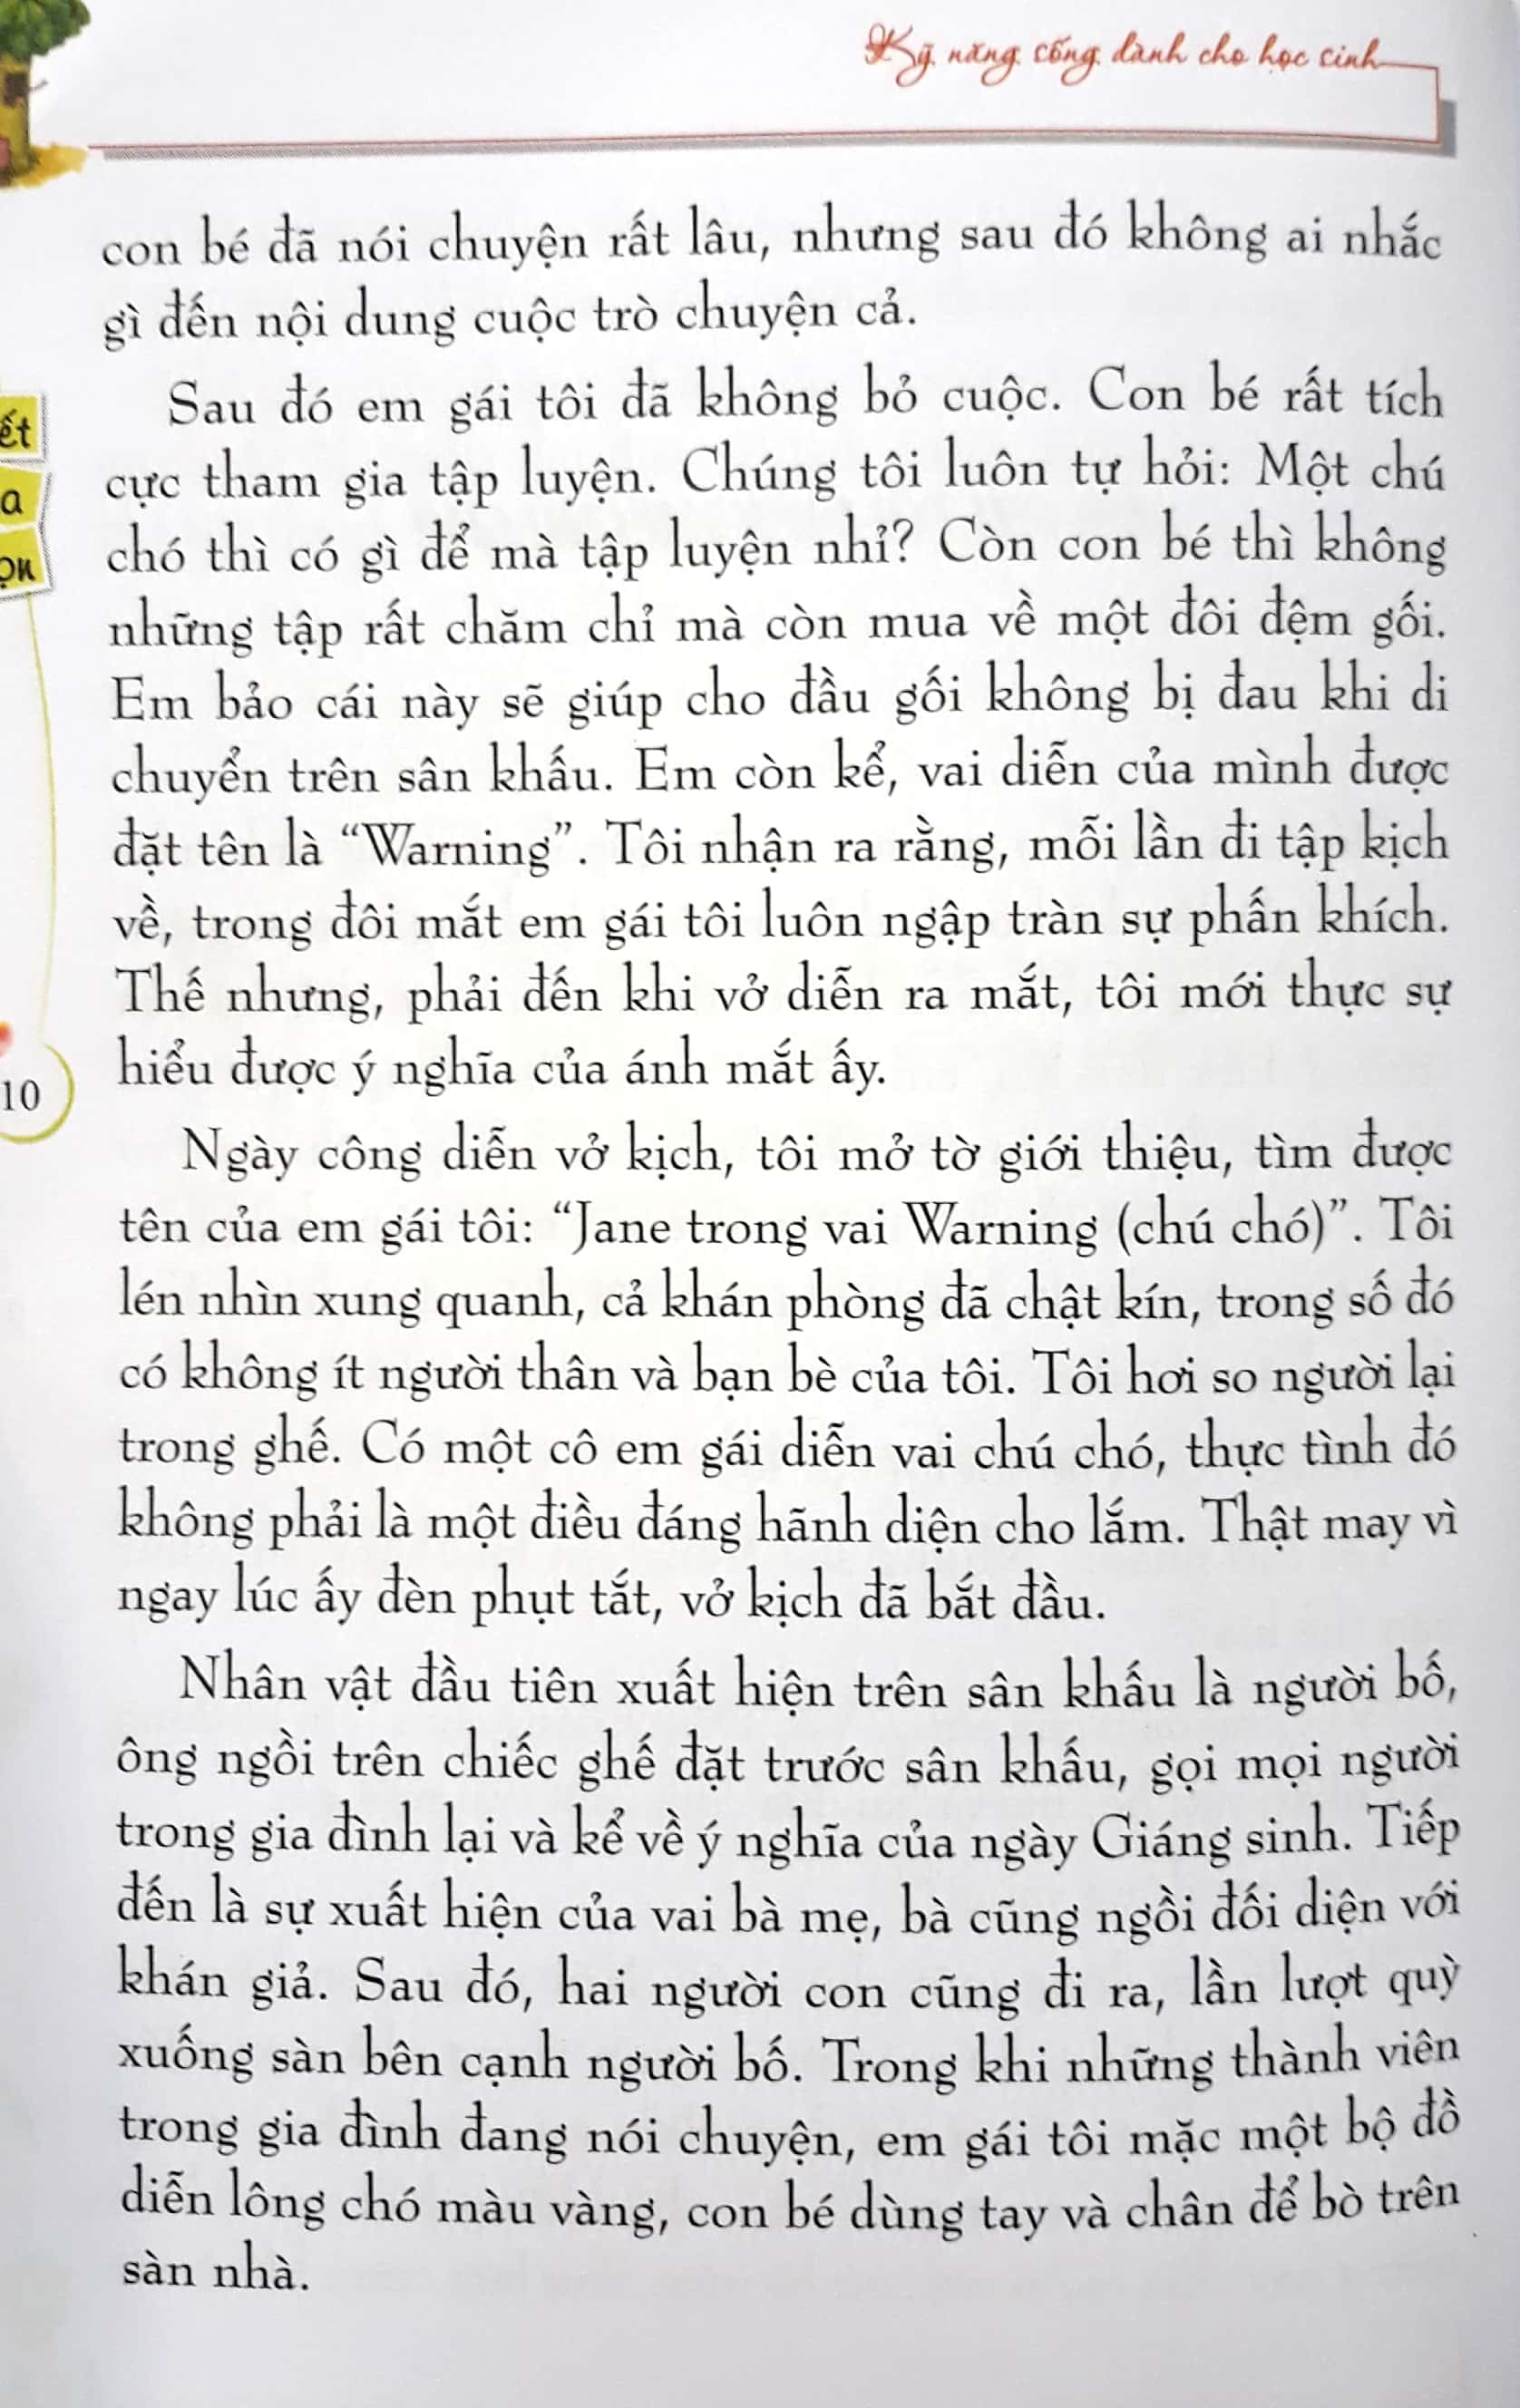 Kỹ năng sống dành cho học sinh
con bé đã nói chuyện rất lâu, nhưng sau đó không ai nhắc
gì đến nội dung cuộc trò chuyện cả.
Sau đó em gái tôi đã không bỏ cuộc. Con bé rất tích
cực tham gia tập luyện. Chúng tôi luôn tự hỏi: Một chú
chó thì có gì để mà tập luyện nhỉ? Còn con bé thì không
những tập rất chăm chỉ mà còn mua về một đôi đệm gối.
Em bảo cái này sẽ giúp cho đầu gối không bị đau khi di
chuyển trên sân khấu. Em còn kể, vai diễn của mình được
đặt tên là “Warning”. Tôi nhận ra rằng, mỗi lần đi tập kịch
về, trong đôi mắt em gái tôi luôn ngập tràn sự phấn khích.
Thế nhưng, phải đến khi vở diễn ra mắt, tôi mới thực sự
hiểu được ý nghĩa của ánh mắt ấy.
Ngày công diễn vở kịch, tôi mở tờ giới thiệu, tìm được
tên của em gái tôi: “Jane trong vai Warning (chú chó)”. Tôi
lén nhìn xung quanh, cả khán phòng đã chật kín, trong số đó
có không ít người thân và bạn bè của tôi. Tôi hơi so người lại
trong ghế. Có một cô em gái diễn vai chú chó, thực tình đó
không phải là một điều đáng hãnh diện cho lắm. Thật may vì
ngay lúc ấy đèn phụt tắt, vở kịch đã bắt đầu.
Nhân vật đầu tiên xuất hiện trên sân khấu là người bố,
ông ngồi trên chiếc ghế đặt trước sân khấu, gọi mọi người
trong gia đình lại và kể về ý nghĩa của ngày Giáng sinh. Tiếp
đến là sự xuất hiện của vai bà mẹ, bà cũng ngồi đối diện với
khán giả. Sau đó, hai người con cũng đi ra, lần lượt quỳ
xuống sàn bên cạnh người bố. Trong khi những thành viên
trong gia đình đang nói chuyện, em gái tôi mặc một bộ đồ
diễn lông chó màu vàng, con bé dùng tay và chân để bò trên
sàn nhà.
ết
a
ọn
10